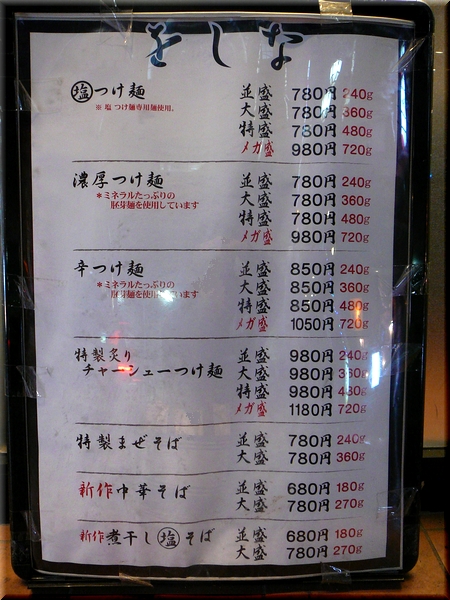 をしな
塩つけ麺 並盛 780円 240g
※ 塩 つけ麺専用麺使用。 大盛 780円 360g
特盛 780円 480g
メガ盛 980円 720g
濃厚つけ麺 並盛 780円 240g
＊ミネラルたっぷりの 大盛 780円 360g
胚芽麺を使用しています 特盛 780円 480g
メガ盛 980円 720g
辛つけ麺 並盛 850円 240g
＊ミネラルたっぷりの 大盛 850円 360g
胚芽麺を使用しています 特盛 850円 480g
メガ盛 1050円 720g
特製炙り 並盛 980円 240g
チャーシューつけ麺 大盛 980円 360g
特盛 980円 480g
メガ盛 1180円 720g
特製まぜそば 並盛 780円 240g
大盛 780円 360g
新作中華そば 並盛 680円 180g
大盛 780円 270g
新作煮干し塩そば 並盛 680円 180g
大盛 780円 270g